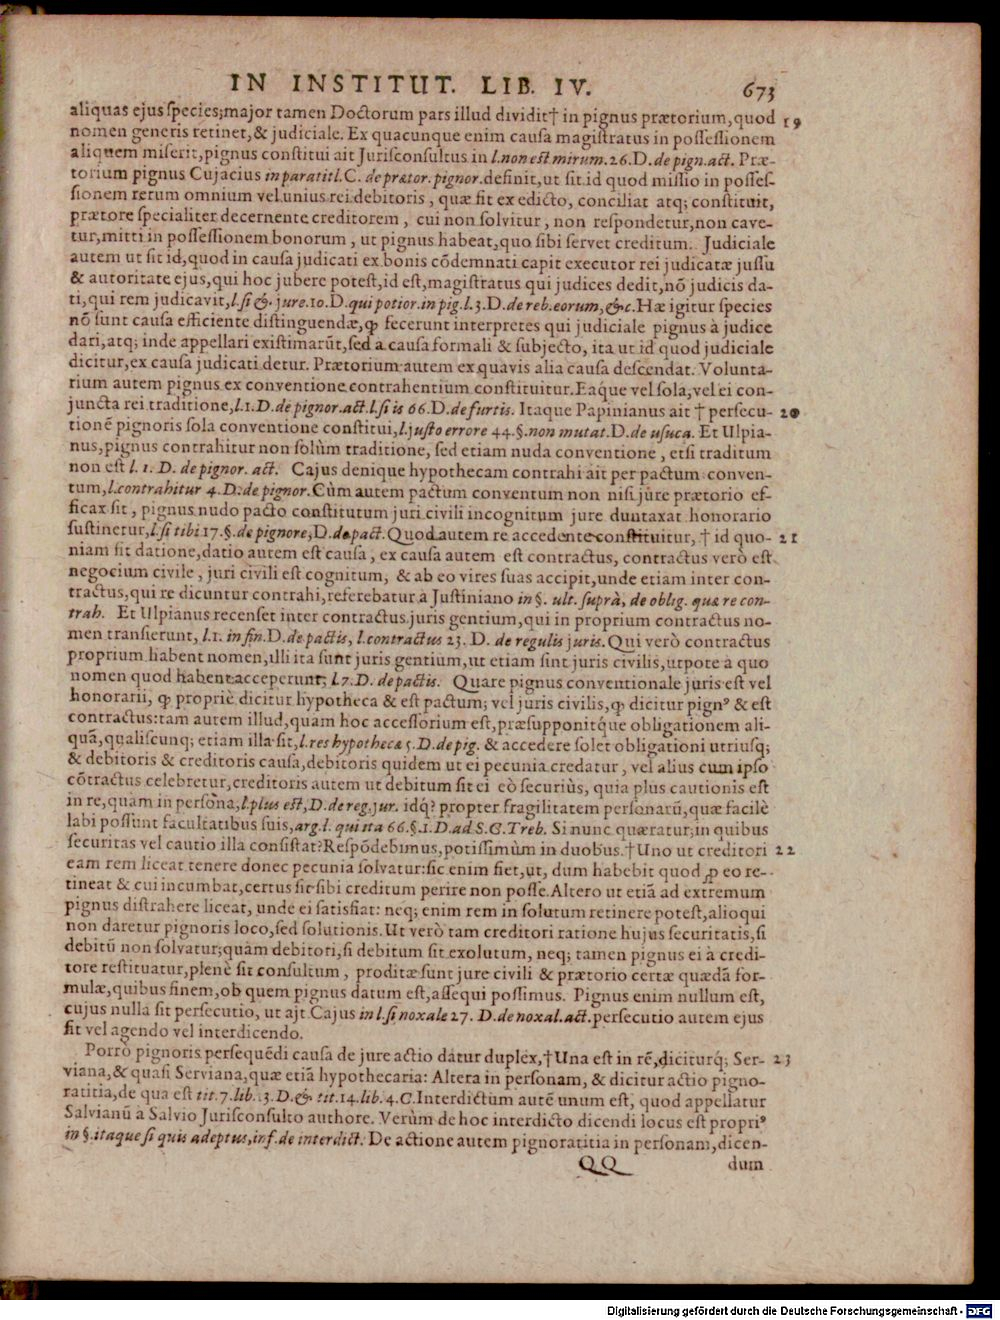 IN INSTITUT. LIB. IV. 673
aliquas ejus species;major tamen Doctorum pars illud dividit† in pignus prætorium,quod 19
nomen generis retinet,& judiciale. Ex quacunque enim causa magistratus in possessionem
aliquem miserit,pignus constitui ait Jurisconsultus in l.non est mirum.26.D.de pign.act. Præ-
torium pignus Cujacius in paratitl.C. de prætor.pignor.definit,ut sit id quod missio in posses-
sionem rerum omnium vel unius rei debitoris, quæ fit ex edicto, conciliat atq; constituit,
prætore specialiter decernente creditorem, cui non solvitur, non respondetur,non cave-
tur,mitti in possessionem bonorum, ut pignus habeat,quo sibi servet creditum. Judiciale
autem ut sit id,quod in causa judicati ex bonis cõdemnati capit executor rei judicatæ jussu
& autoritate ejus,qui hoc jubere potest,id est,magistratus qui judices dedit,nõ judicis da-
ti,qui rem judicavit,l.si & jure.10.D.qui potior.in pig.l.3.D.de reb.eorum,&c.Hæ igitur species
nõ sunt causa efficiente distinguendæ,ꝙ fecerunt interpretes qui judiciale pignus à judice
dari,atq; inde appellari existimarũt,sed a causa formali & subjecto, ita ut id quod judiciale
dicitur,ex causa judicati detur. Prætorium autem ex quavis alia causa descendat. Volunta-
rium autem pignus ex conventione contrahentium constituitur.Eaque vel sola,vel ei con-
juncta rei traditione,l.1.D.de pignor.act.l.si is 66.D.de furtis. Itaque Papinianus ait † persecu- 20
tionẽ pignoris sola conventione constitui,l.justo errore 44.§.non mutat.D.de usuca. Et Ulpia-
nus,pignus contrahitur non solùm traditione, sed etiam nuda conventione, etsi traditum
non est l. 1. D. de pignor. act. Cajus denique hypothecam contrahi ait per pactum conven-
tum,l.contrahitur 4.D.de pignor.Cùm autem pactum conventum non nisi jure prætorio ef-
ficax sit, pignus nudo pacto constitutum juri civili incognitum jure duntaxat honorario
sustinetur,l.si tibi 17.§.de pignore,D.de pact.Quod autem re accedente constituitur, † id quo- 21
niam fit datione,datio autem est causa, ex causa autem est contractus, contractus verò est
negocium civile, juri civili est cognitum, & ab eo vires suas accipit,unde etiam inter con-
tractus,qui re dicuntur contrahi,referebatur à Justiniano in §. ult.suprà, de oblig. quæ re con-
trah. Et Ulpianus recenset inter contractus juris gentium,qui in proprium contractus no-
men transierunt, l.1. in fin.D.de pactis, l.contractus 23. D. de regulis juris.Qui verò contractus
proprium habent nomen,illi ita sunt juris gentium,ut etiam sint juris civilis,utpote à quo
nomen quod habent acceperunt; l.7.D. de pactis. Quare pignus conventionale juris est vel
honorarii, ꝙ propriè dicitur hypotheca & est pactum; vel juris civilis,ꝙ dicitur pignꝰ & est
contractus:tam autem illud,quam hoc accessorium est,præsupponitq́ue obligationem ali-
quã,qualiscunq; etiam illa sit,l.res hypothecæ 5.D.de pig. & accedere solet obligationi utriusq;
& debitoris & creditoris causa,debitoris quidem ut ei pecunia credatur, vel alius cum ipso
cõtractus celebretur,creditoris autem ut debitum sit ei eò securiùs, quia plus cautionis est
in re,quàm in persona,l.plus est,D.de reg.jur. idq́? propter fragilitatem personarũ,quæ facilè
labi possunt facultatibus suis,arg.l. qui ita 66.§.1.D.ad S.C.Treb. Si nunc quæratur;in quibus
securitas vel cautio illa consistat?Respõdebimus,potissimùm in duobus.†Uno ut creditori 22
eam rem liceat tenere donec pecunia solvatur:sic enim fiet,ut, dum habebit quod ꝓ eo re-
tineat & cui incumbat,certus sit sibi creditum perire non posse.Altero ut etiã ad extremum
pignus distrahere liceat, unde ei satisfiat: neq; enim rem in solutum retinere potest,alioqui
non daretur pignoris loco,sed solutionis.Ut verò tam creditori ratione hujus securitatis,si
debitũ non solvatur;quàm debitori,si debitum sit exolutum, neq; tamen pignus ei à credi-
tore restituatur,plenè sit consultum, proditæ sunt jure civili & prætorio certæ quædã for-
mulæ,quibus finem,ob quem pignus datum est,assequi possimus. Pignus enim nullum est,
cujus nulla sit persecutio, ut ajt Cajus in l.si noxale 27. D.de noxal.act.persecutio autem ejus
fit vel agendo vel interdicendo.
Porrò pignoris persequẽdi causa de jure actio datur duplex,†Una est in rẽ,diciturq́; Ser- 23
viana,& quasi Serviana,quæ etiã hypothecaria: Altera in personam, & dicitur actio pigno-
ratitia,de qua est tit.7.lib.13.D.& tit.14.lib.4.C.Interdictum autẽ unum est, quod appellatur
Salvianũ à Salvio Jurisconsulto authore. Verùm de hoc interdicto dicendi locus est propriꝰ
in §.itaque si quis adeptus,inf.de interdict. De actione autem pignoratitia in personam,dicen-
QQ dum
Digitalisierung gefördert durch die Deutsche Forschungsgemeinschaft - DFG